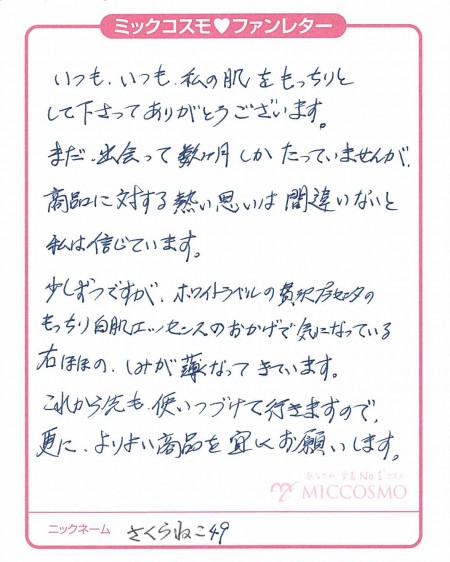 ミックコスモ♥ファンレター
いつも、いつも、私の肌をもっちりと
して下さってありがとうございます。
まだ、出会って数ヶ月しかたっていませんが、
商品に対する熱い思いは間違いないと
私は信じています。
少しずつですが、ホワイトラベルの贅沢プラセンタの
もっちり白肌エッセンスのおかげで気になっている
右ほほの、しみが薄くなってきています。
これから先も、使いつづけて行きますので、
更に、よりよい商品を宜しくお願いします。
あなたの 定番 No.1コスメ
MICCOSMO
ニックネーム さくらねこ49